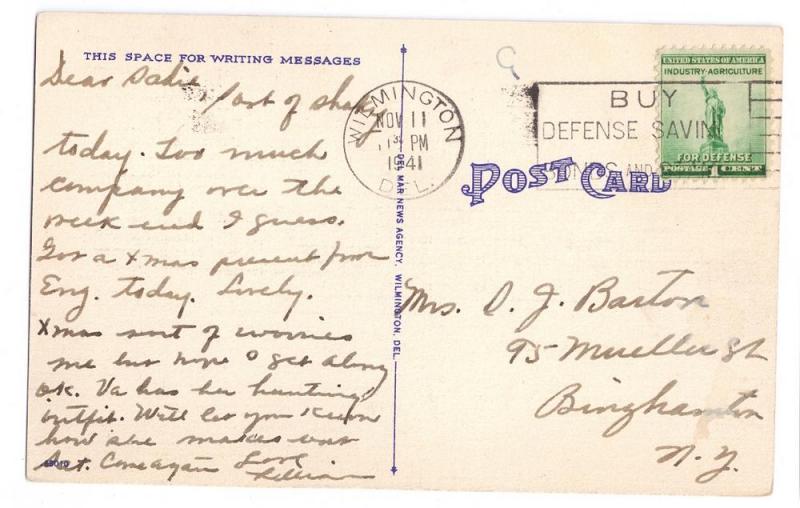 THIS SPACE FOR WRITING MESSAGES
Dear Sadie
out of shape
today. Too much
company over the
week end I guess.
Got a Xmas present from
Eng. today. Lovely.
Xmas sort of worries
me but hope I get along
O.K. Va has her hunting
outfit. Will let you know
how she makes out
Sat. Come again Love
Lillian
48010
DEL MAR NEWS AGENCY, WILMINGTON, DEL.
WILMINGTON
NOV 11
PM
1941
DEL.
BUY
DEFENSE SAVIN
AND
UNITED STATES OF AMERICA
INDUSTRY·AGRICULTURE
FOR DEFENSE
POSTAGE 1 CENT
POST CARD
Mrs. D. J. Barton
95 Mueller St
Binghamton
N.Y.